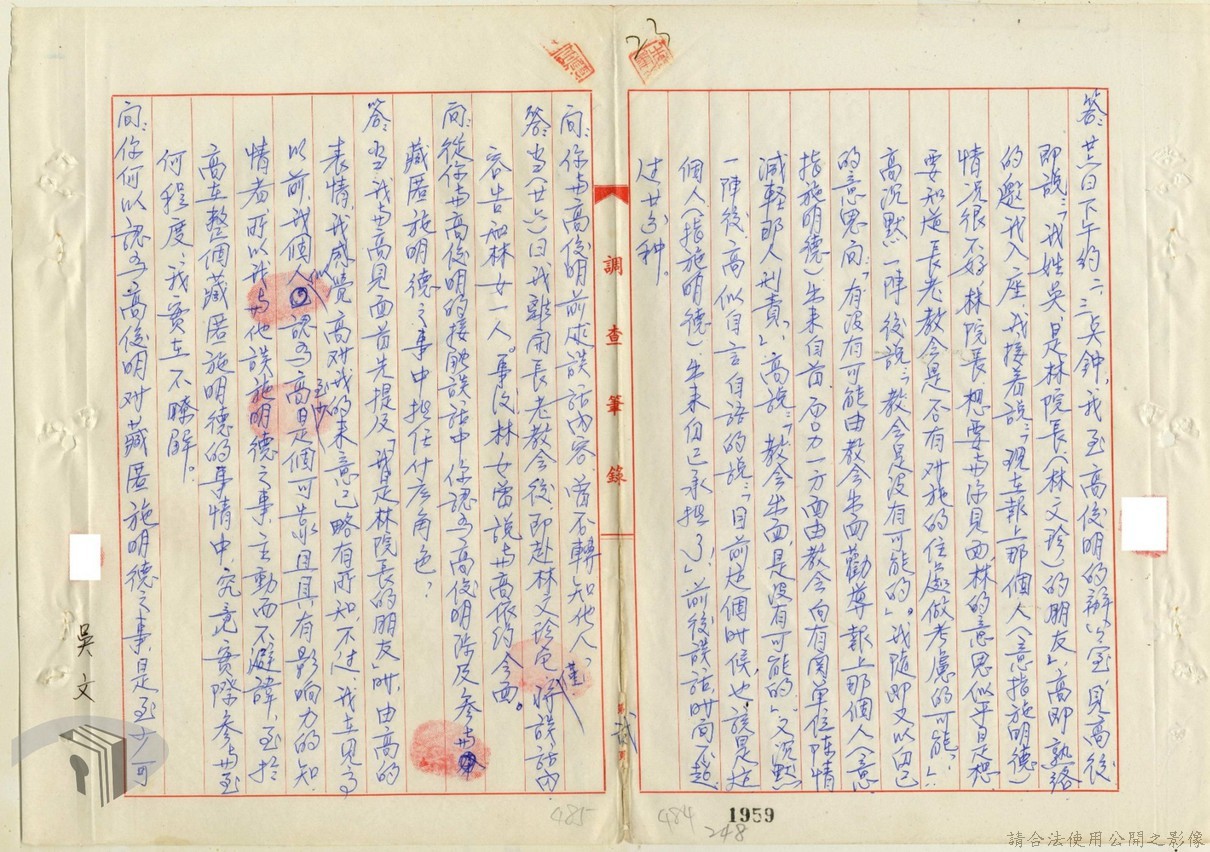 答：廿六日下午約二、三点钟，我至高俊明的辦公室，見高後
即説：「我姓吳，是林院長（林文珍）的朋友」，高即熟絡
的邀我入座，我接着説：「現在報上那個人（意指施明德）
情況很不好，林院長想要與你見面，林的意思似乎是想
要知道長老教会是否有对施的住處做考慮的可能」，
高沉默一陣後説：「教会是没有可能的」。我隨即又以自己
的意思問：「有没有可能由教会出面勸導報上那個人（意
指施明德）出來自首，而另一方面由教会向有関單位陳情
減輕那人刑責」，高説：「教会出面，是没有可能的」，又沉默
一陣後，高似自言自語的説：「目前這個时候，也該是這
個人（指施明德）出來自己承担了」，前後談話时间不超
过廿分种。
問：你與高俊明前述談話内容，曾否轉知他人？
答：当（廿六）日我離開長老教会後，即赴林文珍宅，將談話内
容告知林女一人。事後林女曾説與高依約会面。
問：從你與高俊明的接触談話中，你認為高俊明涉及参與
藏匿施明德之事中担任什麽角色？
答：当我與高見面首先提及「我是林院長的朋友」时，由高的
表情，我感覺高对我的來意已略有所知，不过，我在見高
以前，我個人以認為高至少是個可靠且具有影响力的知
情者，所以我與他談施明德之事，主動而不避諱，至於
高在整個藏匿施明德的事情中，究竟實際参與至
何程度，我實在不瞭解。
問：你何以認為高俊明对藏匿施明德之事，是至少一可
調查筆錄
僅
吳文
23
485
484
248
1959
請合法使用公開之影像